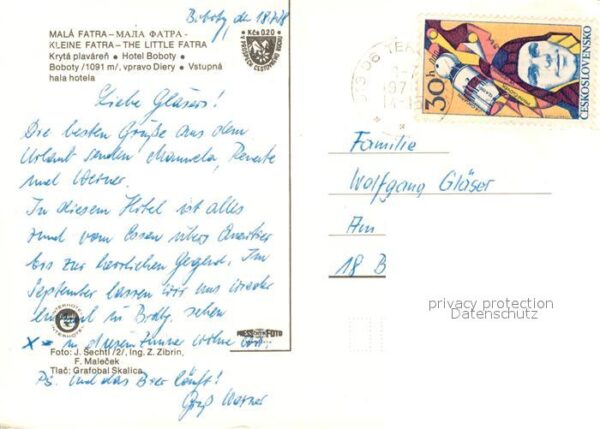 Boboty, den 18.7.78
MALÁ FATRA – МАЛА ФАТРА –
KLEINE FATRA – THE LITTLE FATRA
Krytá plaváreň • Hotel Boboty •
Boboty /1091 m/, vpravo Diery • Vstupná
hala hotela
Kčs 0.20
Liebe Gläsers!
Die besten Grüße aus dem
Urlaub senden Manuela, Renate
und Werner.
In diesem Hotel ist alles
rund vom Essen übers Quartier
bis zur herrlichen Gegend. Im
September lassen wir uns wieder
in Brdbg. sehen
X = in diesem Zimmer wohnen wir.
INTERHOTEL
PRESSFOTO
Foto: J. Šechtl /2/, Ing. Z. Zibrin,
F. Maleček
Tlač: Grafobal Skalica
PS. Und das Bier läuft!
Gruß Werner
30 h
ČESKOSLOVENSKO
013 06 TER
Familie
Wolfgang Gläser
Am
18 B
privacy protection
Datenschutz